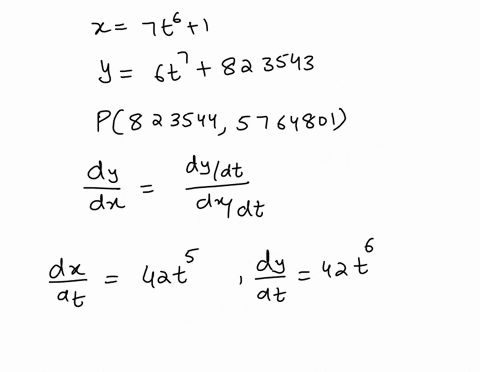 x = 7t⁶+1
y = 6t⁷ + 823543
P(823544, 5764801)
dy/dx = (dy/dt)/(dx/dt)
dx/at = 42t⁵ , dy/at = 42t⁶